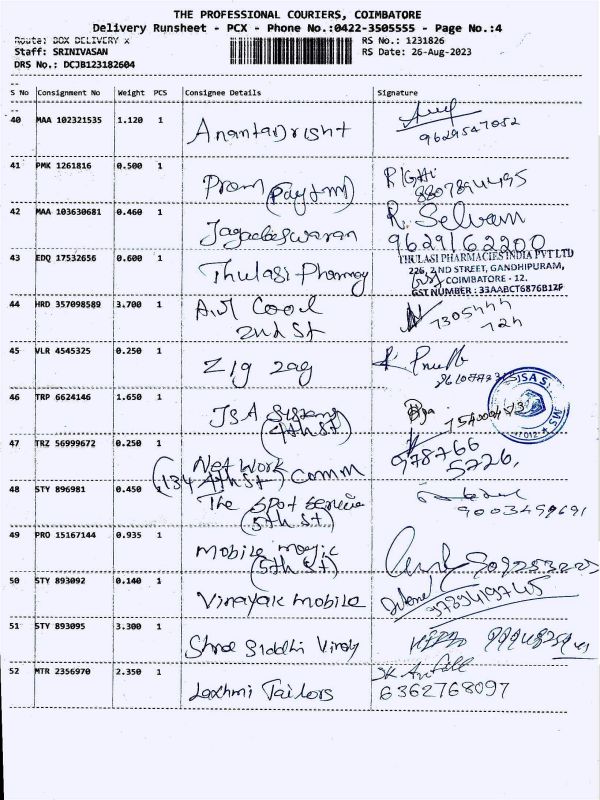 THE PROFESSIONAL COURIERS, COIMBATORE
Delivery Runsheet - PCX - Phone No.:0422-3505555 - Page No.:4
Route: BOX DELIVERY x
RS No.: 1231826
Staff: SRINIVASAN
RS Date: 26-Aug-2023
DRS No.: DCJB123182604
S No Consignment No Weight PCS Consignee Details Signature
40 MAA 102321535 1.120 1 AnantaDrisht
9629547052
41 PMK 1261816 0.500 1 Prom (Paytm)
42 MAA 103630681 0.460 1 Jagadeeswaran R. Selvam
9629162200
43 EDQ 17532656 0.600 1 Thulasi Pharmacy
THULASI PHARMACIES INDIA PVT LTD
226, 2ND STREET, GANDHIPURAM,
COIMBATORE - 12.
GST NUMBER : 33AABCT6876B1ZF
44 HRD 357098589 3.700 1 Cool
2nd St
45 VLR 4545325 0.250 1 Zig Zag
46 TRP 6624146 1.650 1 JSA
(4th St)
47 TRZ 56999672 0.250 1 Net Work Comm
(134 4th St)
978766
5726,
48 STY 896981 0.450 1 The Spot Service
(5th St)
49 PRO 15167144 0.935 1 Mobile Magic
(5th St)
50 STY 893092 0.140 1 Vinayak Mobile
51 STY 893095 3.300 1 Shree Siddhi Vinay
52 MTR 2356970 2.350 1 Laxhmi Tailors
6362768097